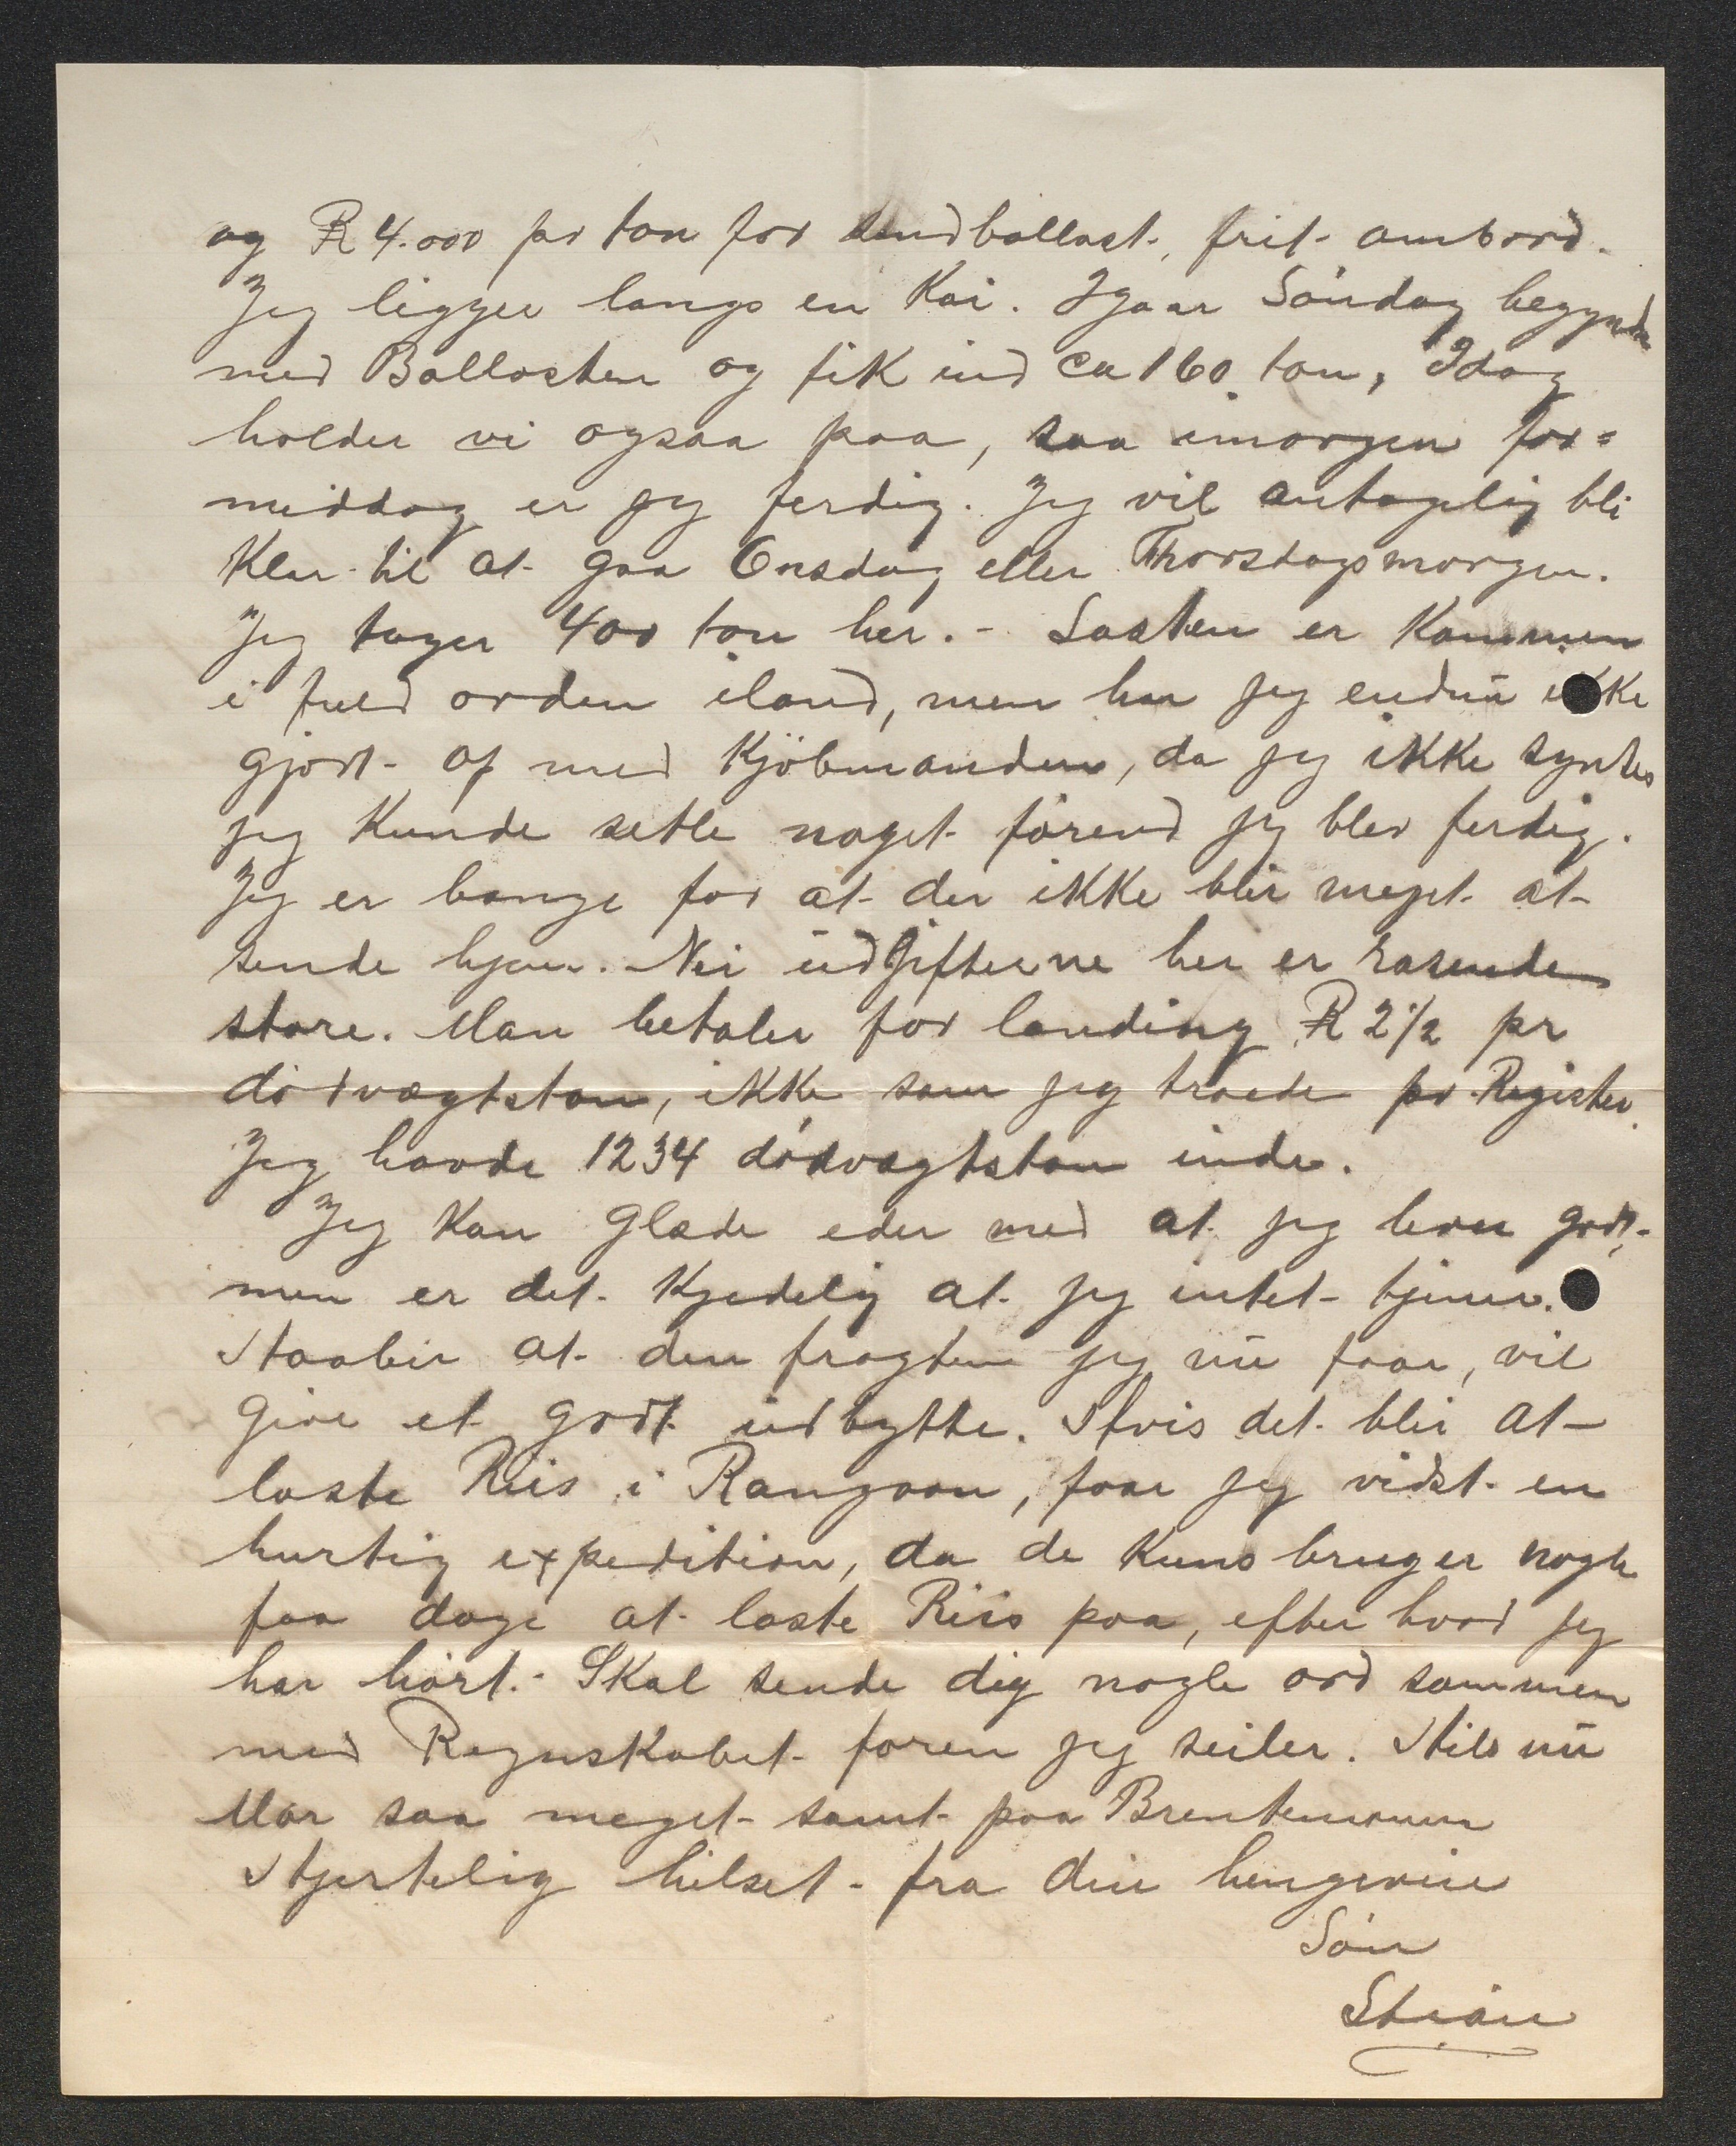 og R 4.000 pr ton for sandballast, frit ombord.
Jeg ligger langs en Kai. Igaar Söndag begyndte
med Ballasten og fik ind ca 160 ton, Idag
holder vi ogsaa paa, saa imorgen for=
middag er jeg ferdig. Jeg vil antagelig bli
Klar til at gaa Onsdag eller Thorsdagsmorgen.
Jeg tager 400 ton her. - Lasten er Kommen
i fuld orden iland, men har jeg endnu ikke
gjort af med Kjöbmanden, da jeg ikke syntes
jeg Kunde setle noget förend jeg blev ferdig.
Jeg er bange for at der ikke blir meget at
sende hjem. Nei udgifterne her er rasende
store. Man betaler for landing R 2 1/2 pr
dödvægtston, ikke som jeg troede pr Register.
Jeg havde 1234 dödvægtston inde.
Jeg Kan Glæde eder med at jeg lever godt,
men er det Kjedelig at jeg intet tjener.
Haaber at den fragten jeg nu faar, vil
Give et godt udbytte. Hvis det blir at
laste Riis i Rangoon, faar jeg vidst en
hurtig expedition, da de Kuns bruger nogle
faa dage at laste Riis paa, efter hvad jeg
har hört. - Skal sende dig nogle ord sammen
med Regnskabet foren jeg seiler. Hils nu
Mor saa meget samt paa Brentemoen
Hjertelig hilset fra din hengivne
Sön